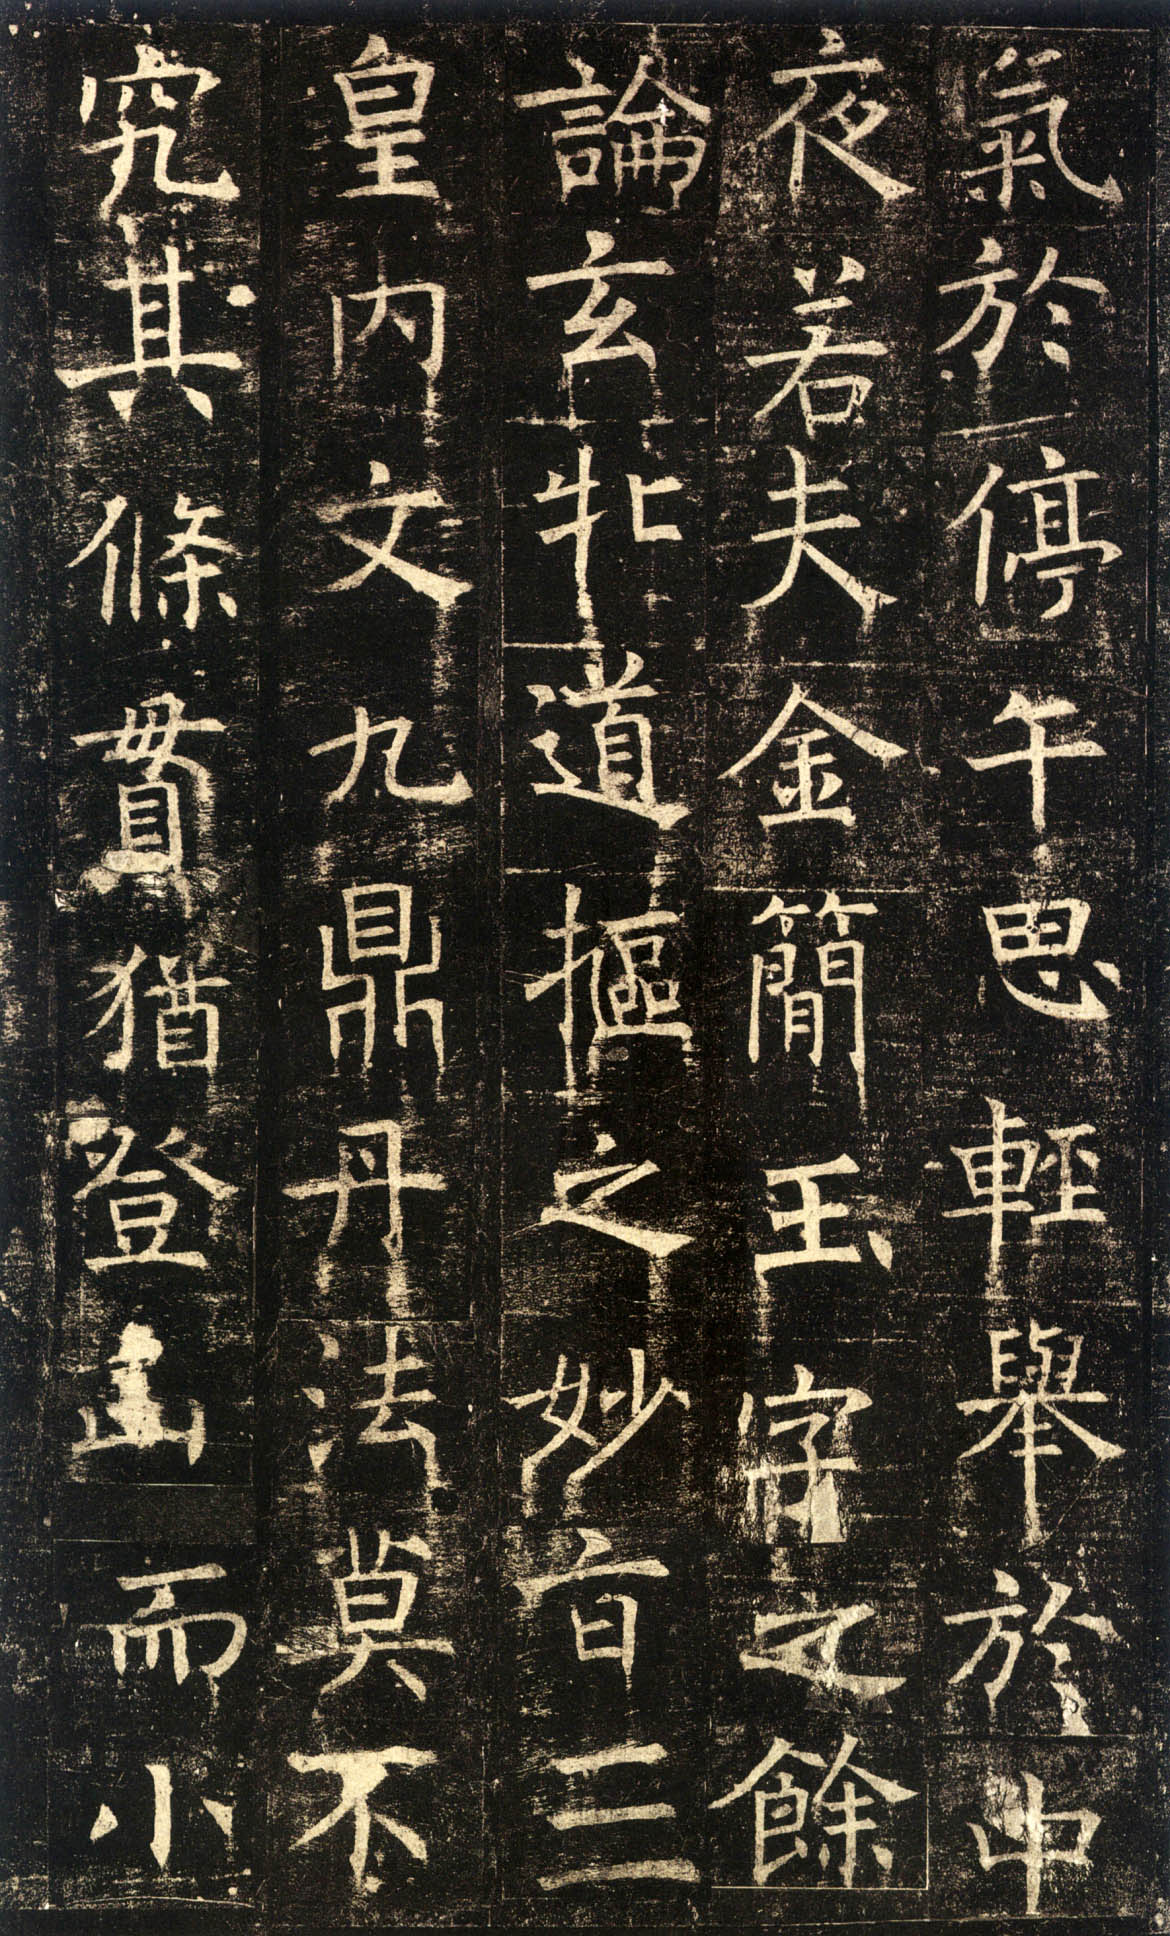 氣於停午思輕舉於中
夜若夫金簡玉字之餘
論玄牝道摳之妙旨三
皇內文九鼎丹法莫不
究其條貫猶登山而小